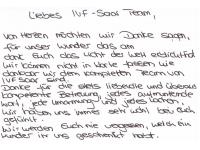 Liebes IVF-Saar Team,
von Herzen möchten wir Danke sagen,
für unser Wunder das am
dank Euch das Licht der Welt erblickt hat
wir können nicht in Worte fassen wie
dankbar wir dem kompletten Team von
IVF Saar sind.
Danke für die stets liebevolle und überaus
kompetente Betreuung, jedes aufmunternde
Wort, jede Umarmung und jedes Lachen.
Wir haben uns immer sehr wohl bei Euch
gefühlt.
Wir werden Euch nie vergessen, welch ein
Wunder ihr uns geschenkt habt.